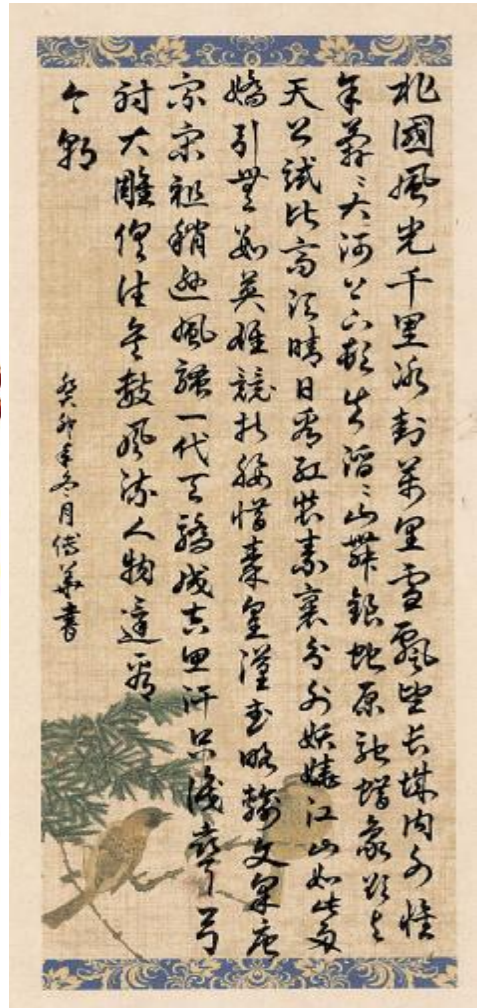 北國風光千里冰封萬里雪飄望長城內外惟
餘莽々大河上下頓失滔々山舞銀蛇原馳蠟象欲與
天公試比高須晴日看紅裝素裹分外妖嬈江山如此多
嬌引無數英雄競折腰惜秦皇漢武略輸文采唐
宗宋祖稍遜風騷一代天驕成吉思汗只識彎弓
射大雕俱往矣數風流人物還看
今朝
癸卯年冬月華書